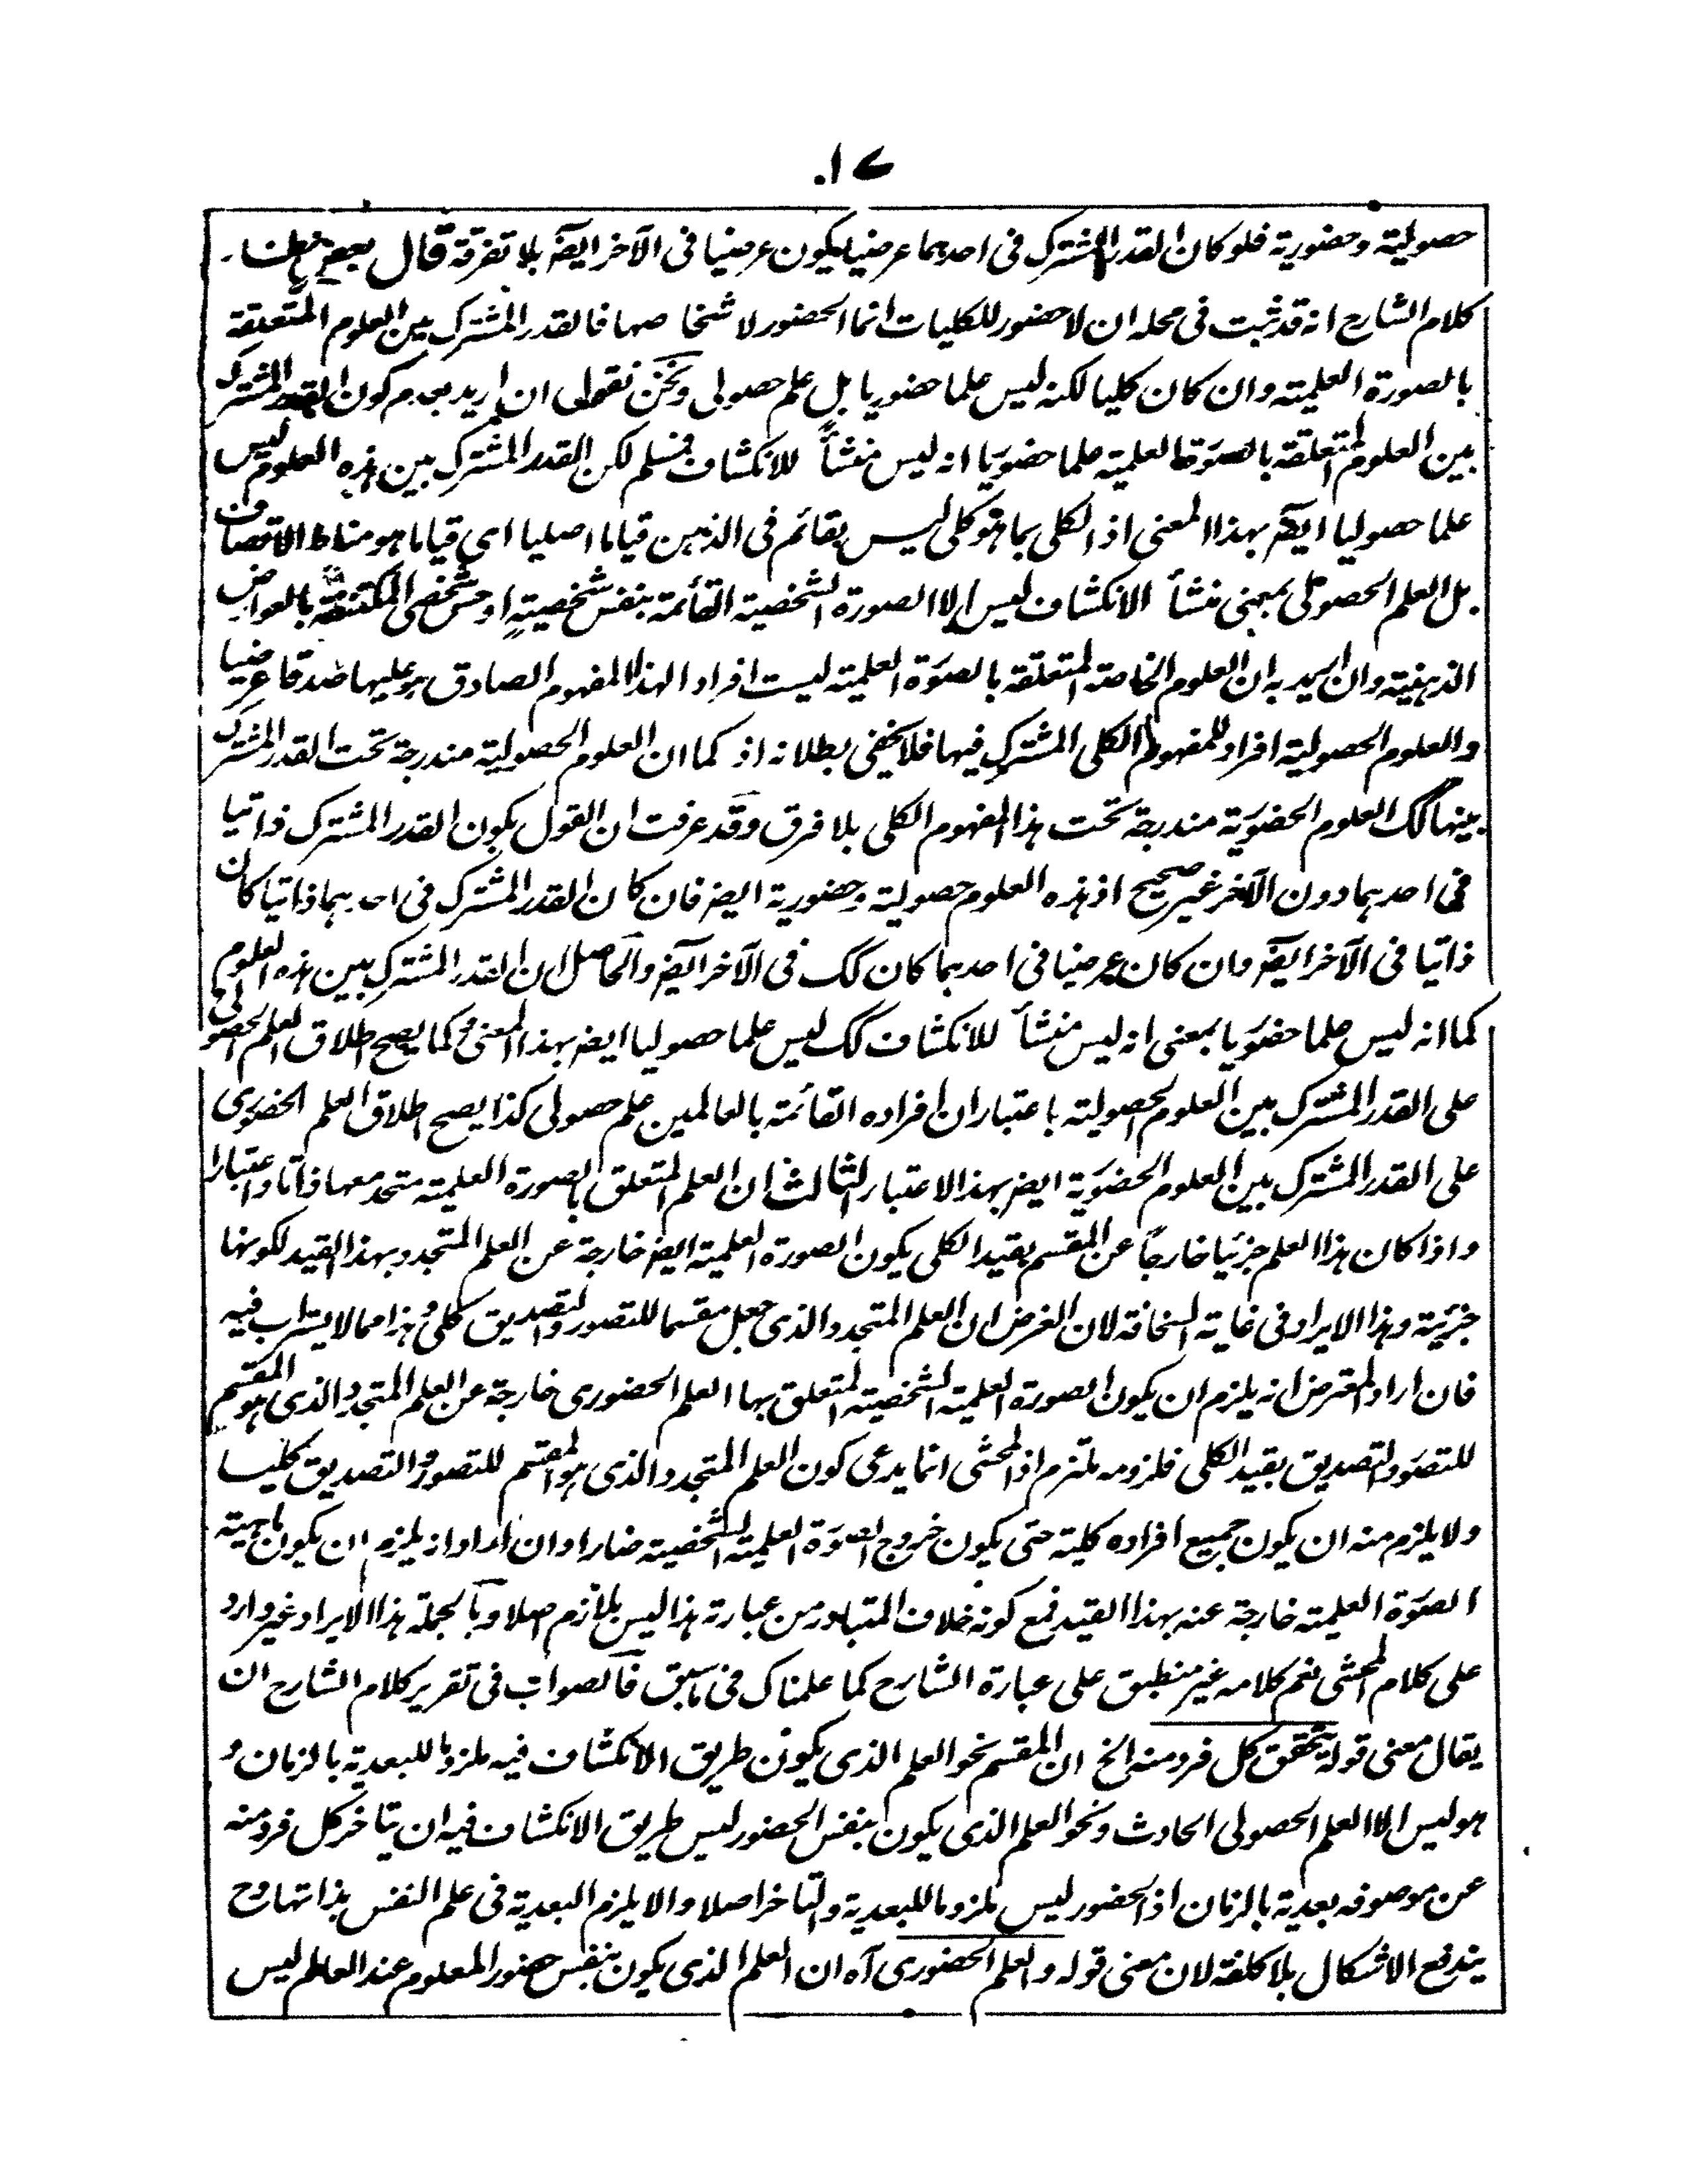 ١٧
حصولية وحضورية فلو كان القدر المشترك فى احدهما عرضيا يكون عرضيا فى الآخر ايضا بلا تفرقة قال بعض
كلام الشارح انه قد ثبت فى محله ان لا حضور للكليات انما الحضور لاشخاصها فالقدر المشترك بين العلوم المتعلقة
بالصورة العلمية وان كان كليا لكنه ليس علما حضوريا بل علم حصولى ونحن نقول ان اريد بعدم كون القدر المشترك
بين العلوم المتعلقة بالصورة العلمية علما حضوريا انه ليس منشأ للانكشاف فمسلم لكن القدر المشترك بين هذه العلوم ليس
علما حصوليا ايضا بهذا المعنى اذ الكلى بما هو كلى ليس بقائم فى الذهن قياما اصليا اى قياما هو مناط الاتصاف
بل العلم الحصولى بمعنى منشأ الانكشاف ليس الا الصورة الشخصية القائمة بنفس شخصية او حس شخصى المكتنفة بالعوارض
الذهنية وان اريد به ان العلوم الخاصة المتعلقة بالصورة العلمية ليست افراد الهذا المفهوم الصادق هو عليها صدقا عرضيا
والعلوم الحصولية افراد للمفهوم الكلى المشترك فيها فلا يخفى بطلانه اذ كما ان العلوم الحصولية مندرجة تحت القدر المشترك
بينها كك العلوم الحضورية مندرجة تحت هذا المفهوم الكلى بلا فرق وقد عرفت ان القول بكون القدر المشترك ذاتيا
فى احدهما دون الآخر غير صحيح اذ هذه العلوم حصولية وحضورية ايضر فان كان القدر المشترك فى احدهما ذاتيا كان
ذاتيا فى الآخر ايضا وان كان عرضيا فى احدهما كان كك فى الآخر ايضا والحاصل ان القدر المشترك بين هذه العلوم
كما انه ليس علما حضوريا بمعنى انه ليس منشأ للانكشاف كك ليس علما حصوليا ايضر بهذا المعنى وكما يصح اطلاق العلم الحصولى
على القدر المشترك بين العلوم الحصولية باعتبار ان افراده القائمة بالعالمين علم حصولى كذا يصح اطلاق العلم الحضورى
على القدر المشترك بين العلوم الحضورية ايضر بهذا الاعتبار الثالث ان العلم المتعلق بالصورة العلمية متحد معها ذاتا واعتبارا
واذا كان هذا العلم جزئيا خارجا عن المقسم بقيد الكلى يكون الصورة العلمية ايضر خارجة عن العلم المتجدد بهذا القيد لكونها
جزئية وهذا الايراد فى غاية السخافة لان الغرض ان العلم المتجدد الذى جعل مقسما للتصور والتصديق كلى وهذا مما لا يستراب فيه
فان اراد المعترض انه يلزم ان يكون الصورة العلمية الشخصية المتعلق بها العلم الحضورى خارجة عن العلم المتجدد الذى هو المقسم
للتصور والتصديق بقيد الكلى فلزومه ملتزم اذ المحشى انما يدعى كون العلم المتجدد الذى هو المقسم للتصور والتصديق كليا
ولا يلزم منه ان يكون جميع افراده كلية حتى يكون خروج الصورة العلمية الشخصية ضارا وان اراد انه يلزم ان يكون ماهية
الصورة العلمية خارجة عنه بهذا القيد فمع كونه خلاف المتبادر من عبارته هذا ليس بلازم اصلا وبالجملة هذا الايراد غير وارد
على كلام المحشى نعم كلامه غير منطبق على عبارة الشارح كما علمناك فى ما سبق فالصواب فى تقرير كلام الشارح ان
يقال معنى قوله تحقق كل فرد منه الخ ان المقسم نحو العلم الذى يكون طريق الانكشاف فيه ملزوما للبعدية بالزمان و
هو ليس الا العلم الحصولى الحادث ونحو العلم الذى يكون بنفس الحضور ليس طريق الانكشاف فيه ان يتاخر كل فرد منه
عن موصوفه بعدية بالزمان اذ الحضور ليس ملزوما للبعدية والتاخر اصلا والا يلزم البعدية فى علم النفس بذاتها وح
يندفع الاشكال بلا كلفة لان معنى قوله والعلم الحضورى آه ان العلم الذى يكون بنفس حضور المعلوم عند العالم ليس